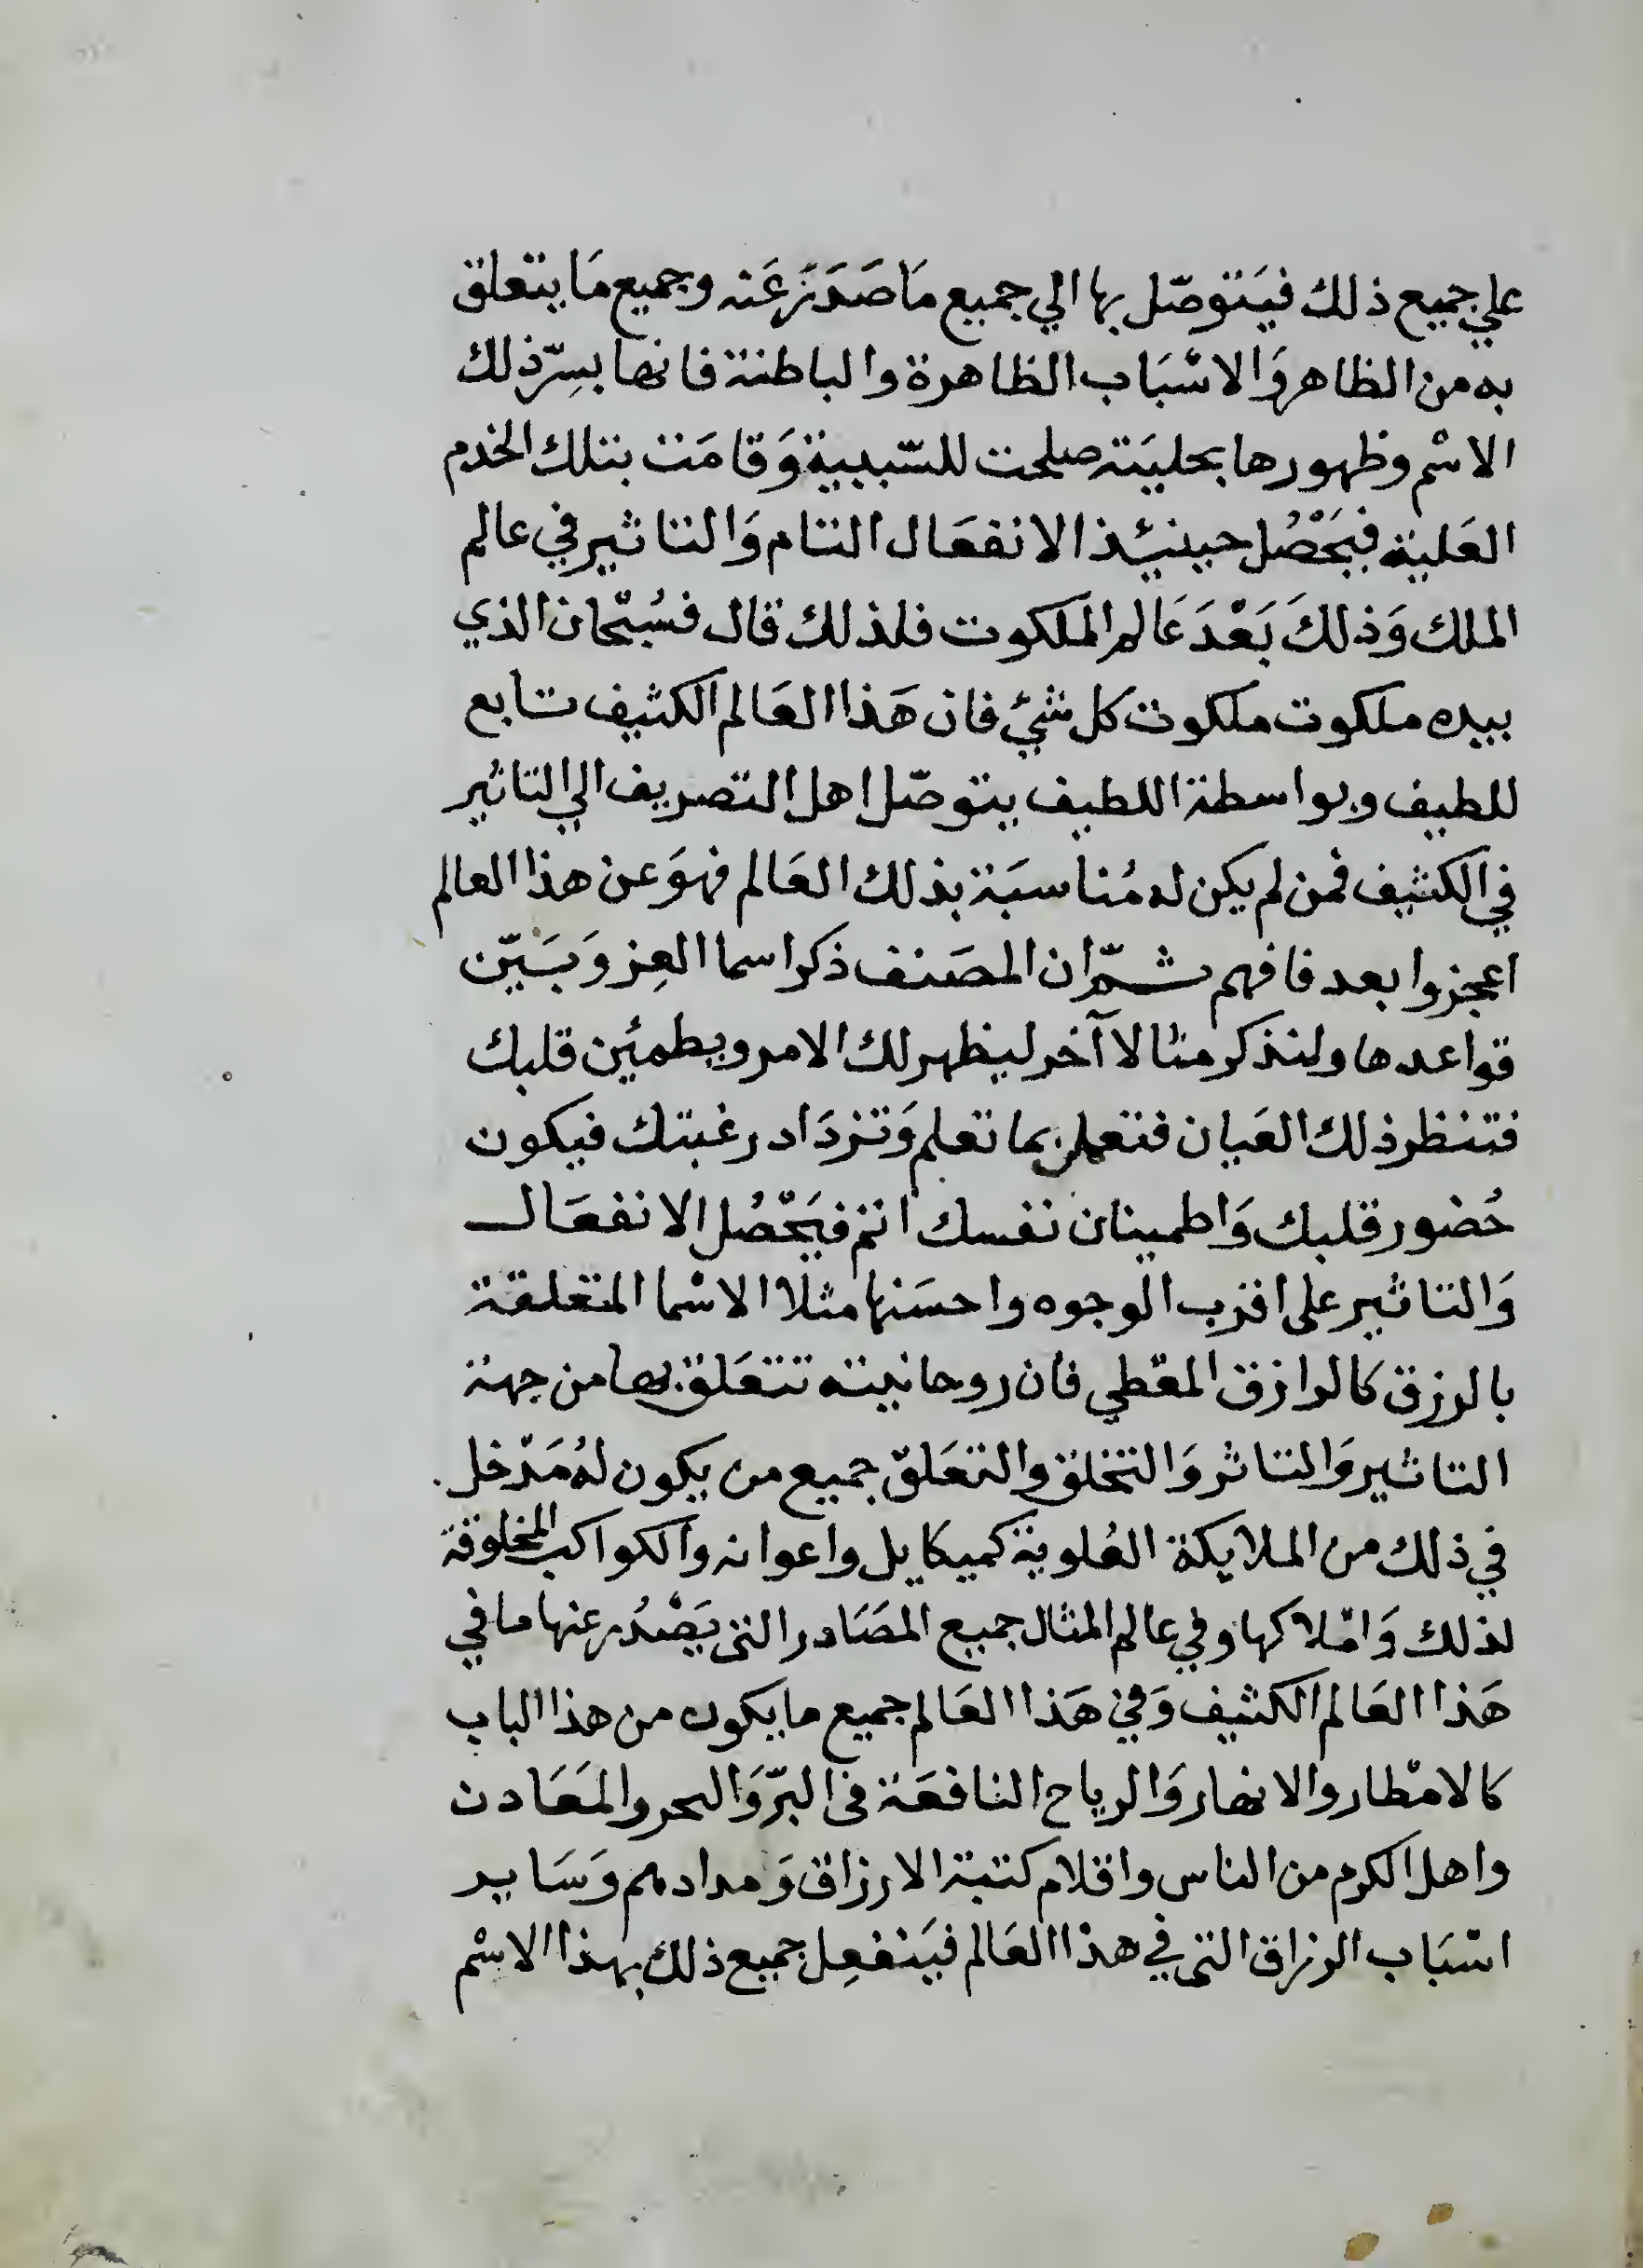 علي جميع ذلك فيَتوصّل بها الي جميع مَا صَدَرَ عَنه وجميع مَا يتعلق
به من الظاهر وَالاسْبَاب الظاهرة والباطنة فانها بسِرّ ذلك
الاسْم وظهورها بحليَته صلحت للسّببية وَقامَت بتلك الخدم
العَلية فيَحْصُل حينيئذ الانفعَال التام وَالتاثير في عالم
الملك وَذلكَ بَعْدَ عَالم الملكوت فلذلك قال فسُبْحان الذي
بيده ملكوت ملكوت كل شيْ فان هَذا العَالم الكثيف تابع
للطيف وبواسطة اللطيف يتوصّل اهل التصريف الي التاثير
في الكثيف فمن لم يكن له مُناسبَة بذلك العَالم فهوَ عن هذا العالم
اعجز وابعد فافهم ثمّ ان المصَنف ذكر اسما العِز وَبَيّن
قواعدها ولنذكر مثالا آخر ليظهر لك الامر ويطمئِن قلبك
فتنظر ذلك العَيان فتعمل بما تعلم وَتزدَاد رغبتك فيكون
حُضور قلبك وَاطمينان نفسك اتم فيَحْصُل الانفعَال
وَالتاثير على اقرب الوجوه واحسَنها مثلا الاسْما المتعلقة
بالرزق كالرازق المعْطي فان روحانيته تتعَلق بها من جهة
التاثير وَالتاثر وَالتخلق والتعَلق جميع من يكون لهُ مَدْخل
في ذلك من الملايكة العُلوية كميكايل واعوانه والكواكب المخلوقة
لذلك وَامْلاكها وفي عالم المثال جميع المصَادر التي يَصْدُر عنها ما في
هَذا العَالم الكثيف وَفي هَذا العَالم جميع ما يكون من هذا الباب
كالامْطار والانهار وَالرياح النافعَة في البرّ وَالبحر والمعَادن
واهل الكرم من الناس واقلام كتبة الارزاق وَمدادهم وَسَاير
اسْبَاب الرزاق التي في هذا العَالم فيَنفعِل جميع ذلك بهذا الاسْم